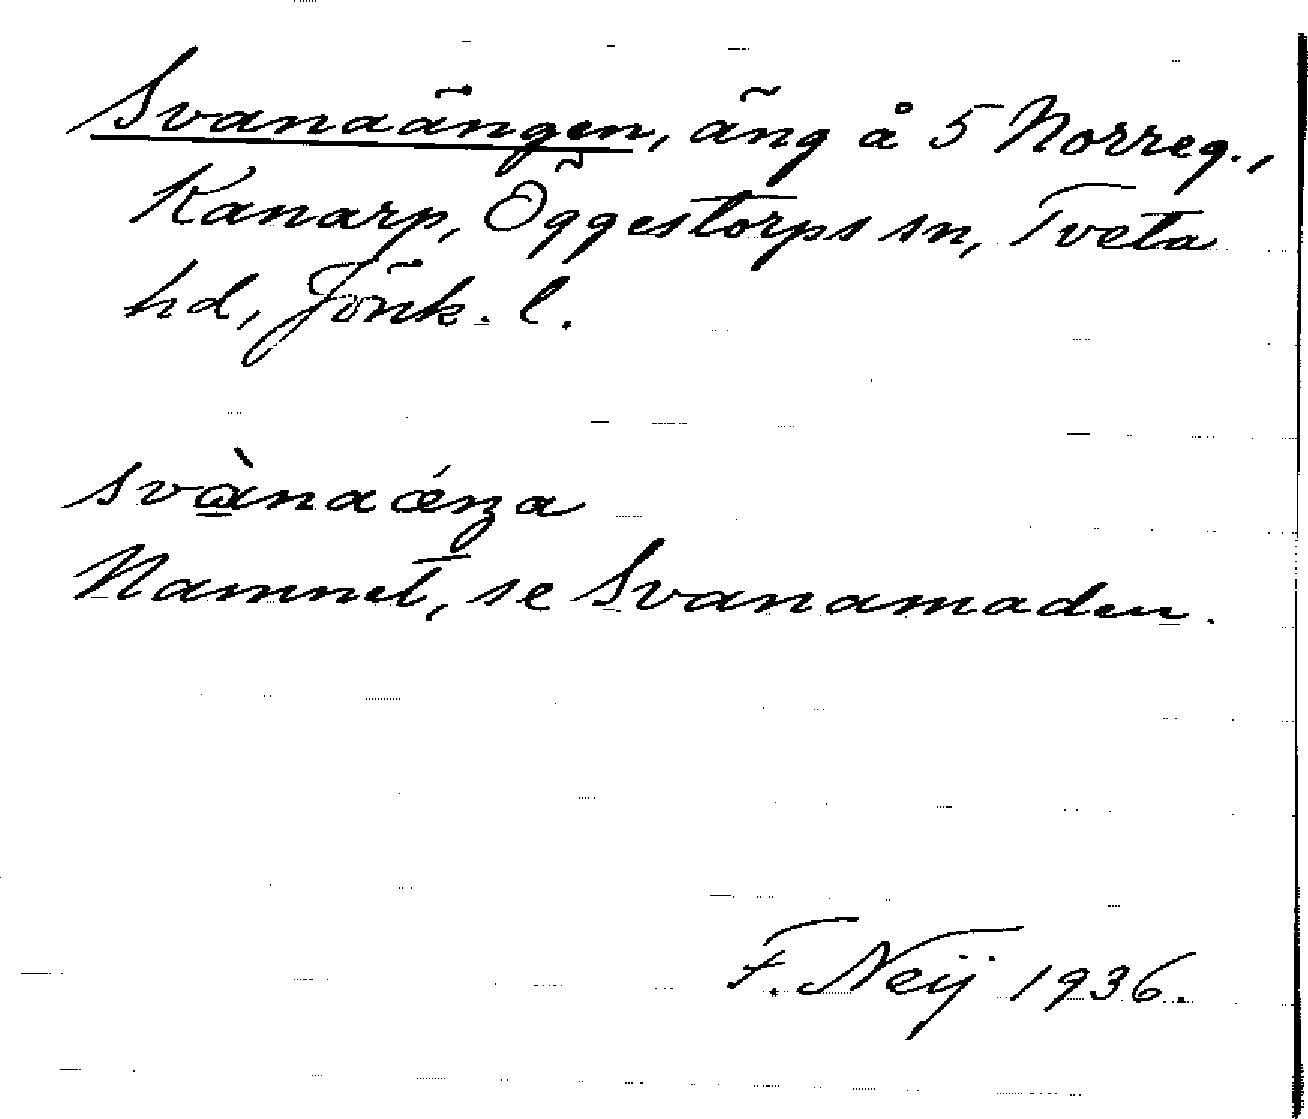 Svanaängen, äng å 5 Norreg.,
Kanarp, Öggestorps sn, Tveta
hd, Jönk. l.
svὰnaǽŋa
Namnet, se Svanamaden.
F. Neij 1936.